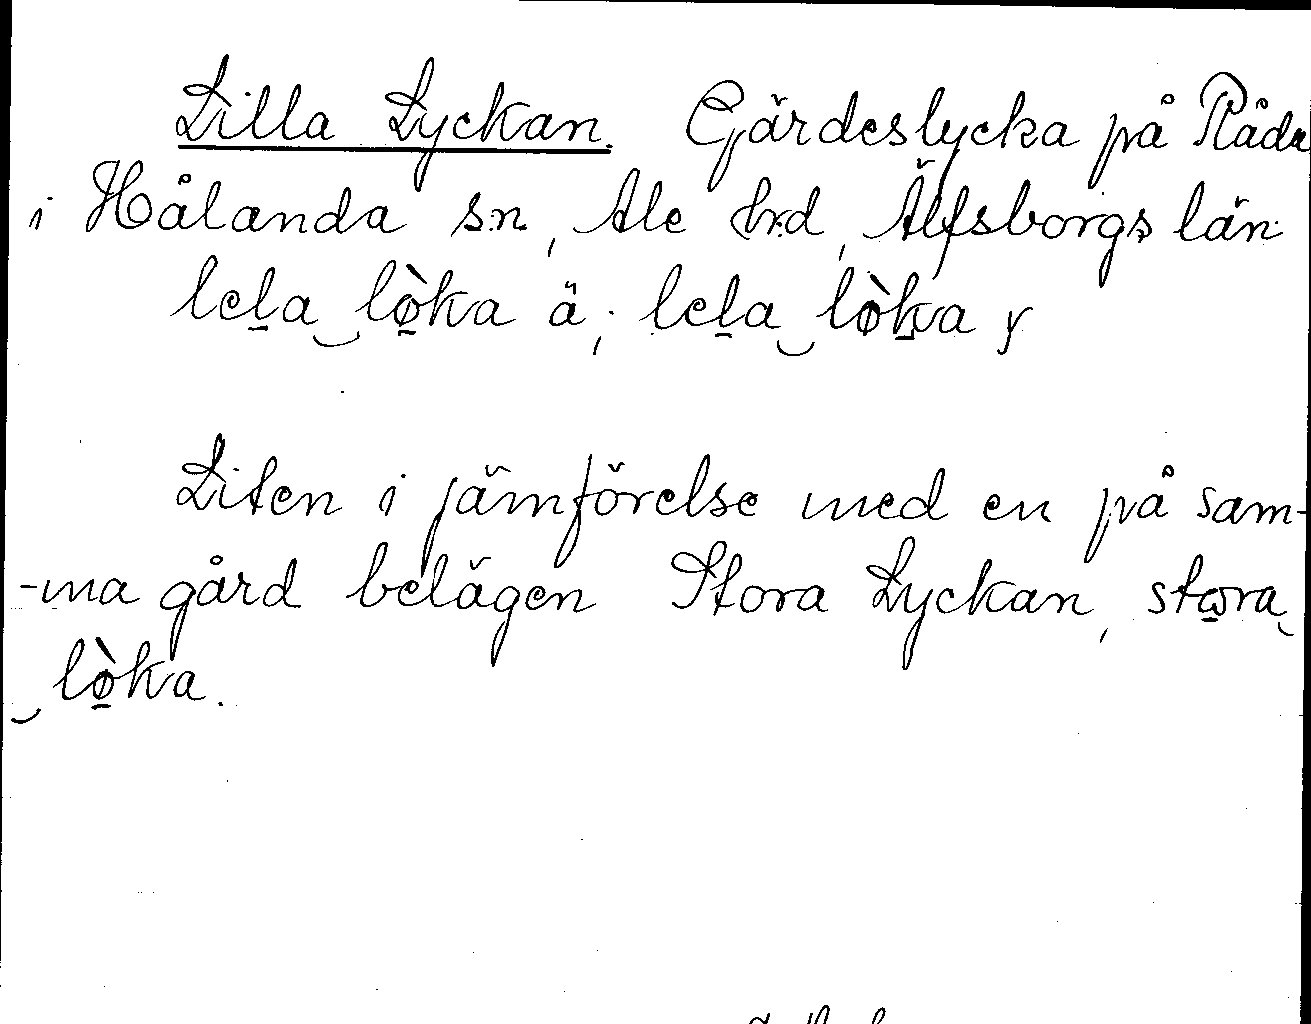 Lilla Lyckan. Gärdeslycka på Råda
i Hålanda sn, Ale hrd, Älfsborgs län
lela lòka ä; lela lòka y
Liten i jämförelse med en på sam-
-ma gård belägen Stora Lyckan, stora
lòka.